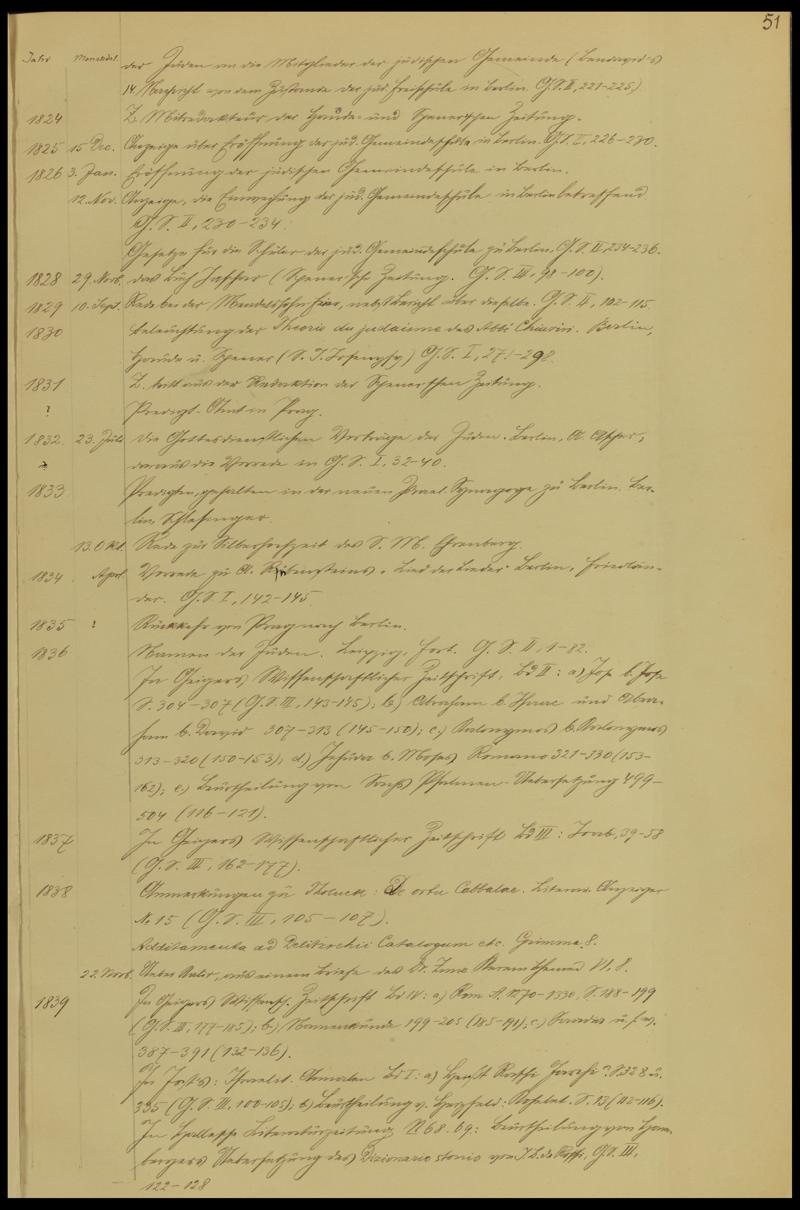 51
Jahr Monatsdat. der Juden an die Mitglieder der jüdischen Gemeinde (Bendavid's
14. Nachricht von dem Zustande der jüd. Freischule in Berlin. G. S. II, 221-225)
1824 Z. Mitredakteur der Haude- und Spenerschen Zeitung.
1825 15 Dec. Anzeige über Eröffnung der jüd. Gemeindeschule in Berlin. G. S. II, 226-230.
1826 3. Jan. Eröffnung der jüdischen Gemeindeschule in Berlin.
12. Nov. Anzeige, die Einweihung der jüd. Gemeindeschule in Berlin betreffend
G. S. II, 230-234.
Gesetze für die Schüler der jüd. Gemeindeschule zu Berlin. G. S. II, 234-236.
1828 29. Novb. das Buch Jaschar (Spener'sche Zeitung. G. S. III, 98-100).
1829 10. Sept. Rede bei der Mendelssohn Feier, nebst Bericht über dieselbe. G. S. II, 102-115.
1830 Beleuchtung der Théorie du judaisme des Abbé Chiarini. Berlin,
Haude u. Spener (S. J. Josephy) G. S. I, 271-298.
1831 Z. tritt aus der Redaktion der Spenerschen Zeitung.
? Predigt-Amt in Prag.
1832. 23. Juli die Gottesdienstlichen Vorträge der Juden. Berlin, A. Asher,
daraus die Vorrede in G. S. I, 32-40.
1833 Predigten, gehalten in der neuen Israel. Synagoge zu Berlin. Ber-
lin Schlesinger.
13. Okt. Rede zur Silberhochzeit des S. M. Ehrenberg.
1834 April Vorrede zu A. Rebensteins, Lied der Lieder. Berlin, Friedlän-
der. G. S. I, 142-145
1835 ? Rückkehr von Prag nach Berlin.
1836 Namen der Juden. Leipzig, Fort. G. S. II, 1-82.
In Geigers Wissenschaftlicher Zeitschrift, Bd II: a) Jose b. Jose
S. 304-307 (G. S. III, 143-145); b) Abraham b. Isaac und Abra-
ham b. David 307-313 (145-150); c) Kalonymos b. Kalonymos
313-320 (150-153); d) Jehuda b. Moses Romano 321-330 (153-
162); e) Beurtheilung von Sachs Psalmen-Uebersetzung 499-
504 (116-121).
1837 In Geigers Wissenschaftlicher Zeitschrift Bd III: 39-58
(G. S. III, 162-177).
1838 Anmerkungen zu Tholuck: De ortu Cabbalae. Literar. Anzeiger
No 15 (G. S. III, 105-107).
Additamenta ad Delitzschii Catalogum etc. Grimma. 8.
22. Novb. aus einem Briefe des Dr. Zunz VI, 8.
1839 In Geigers Wissensch. Zeitschrift Bd IV: a) Rom A. 1270-1330, S. 188-199
(G. S. III, 177-185); b) Namenkunde 199-205 (185-191); c) Saadia u. s. w.
387-391 (132-136).
In Jost's: Israelit. Annalen Bd I: a) Heißt Raschi Jarchi? S. 328 u.
335 (G. S. III, 100-105); b) Beurtheilung v. Herzfeld: Kohelet. S. 13 (112-116).
In Hallesche Literaturzeitung N 68. 69: Beurtheilung von Ham-
bergers Uebersetzung des Dizionario storico von J. B. de Rossi. G. S. III,
122-128